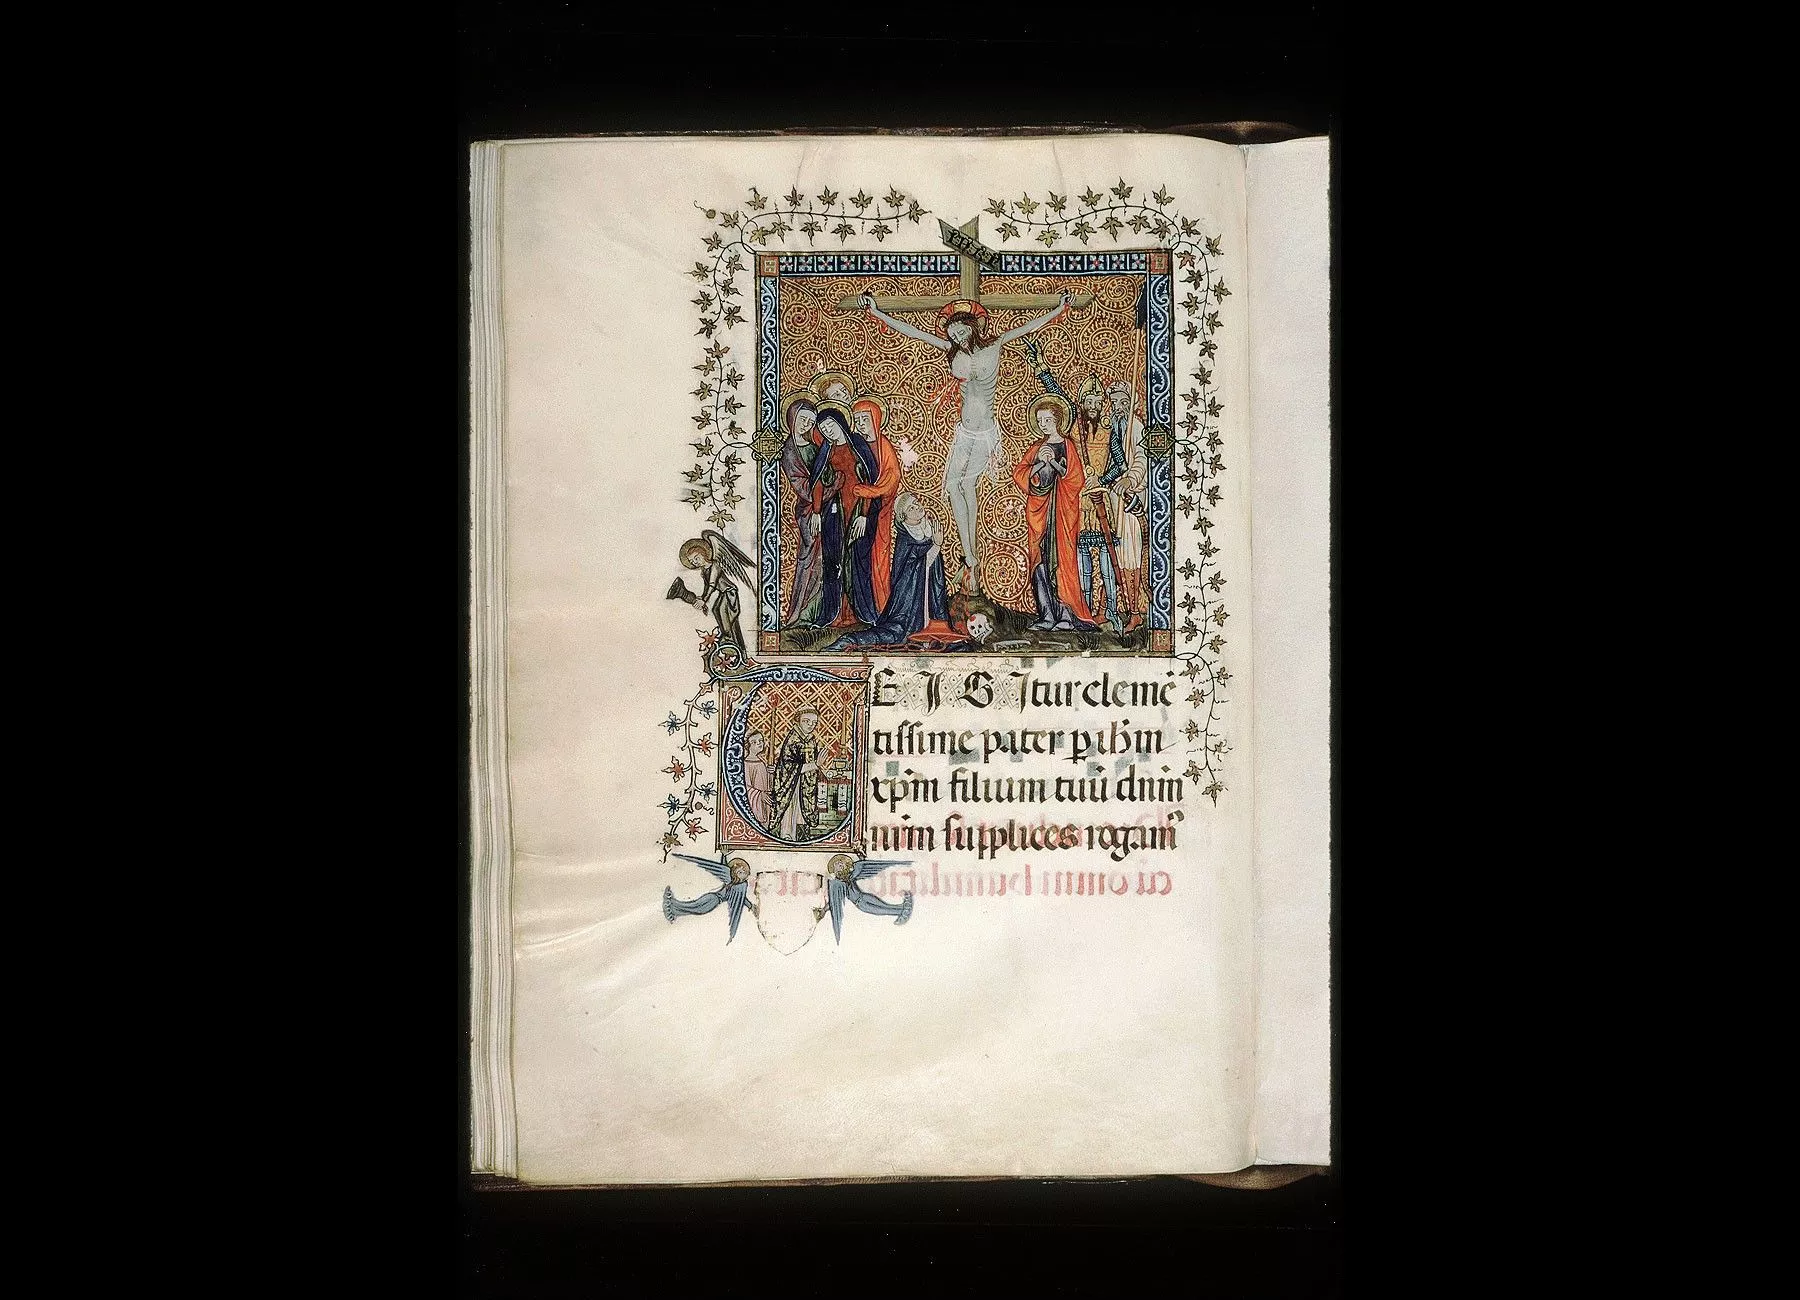 I N R I
TE IGitur clemē
tissime pater p ihm
xpm filium tuū dnm
nrm supplices rogam⁹